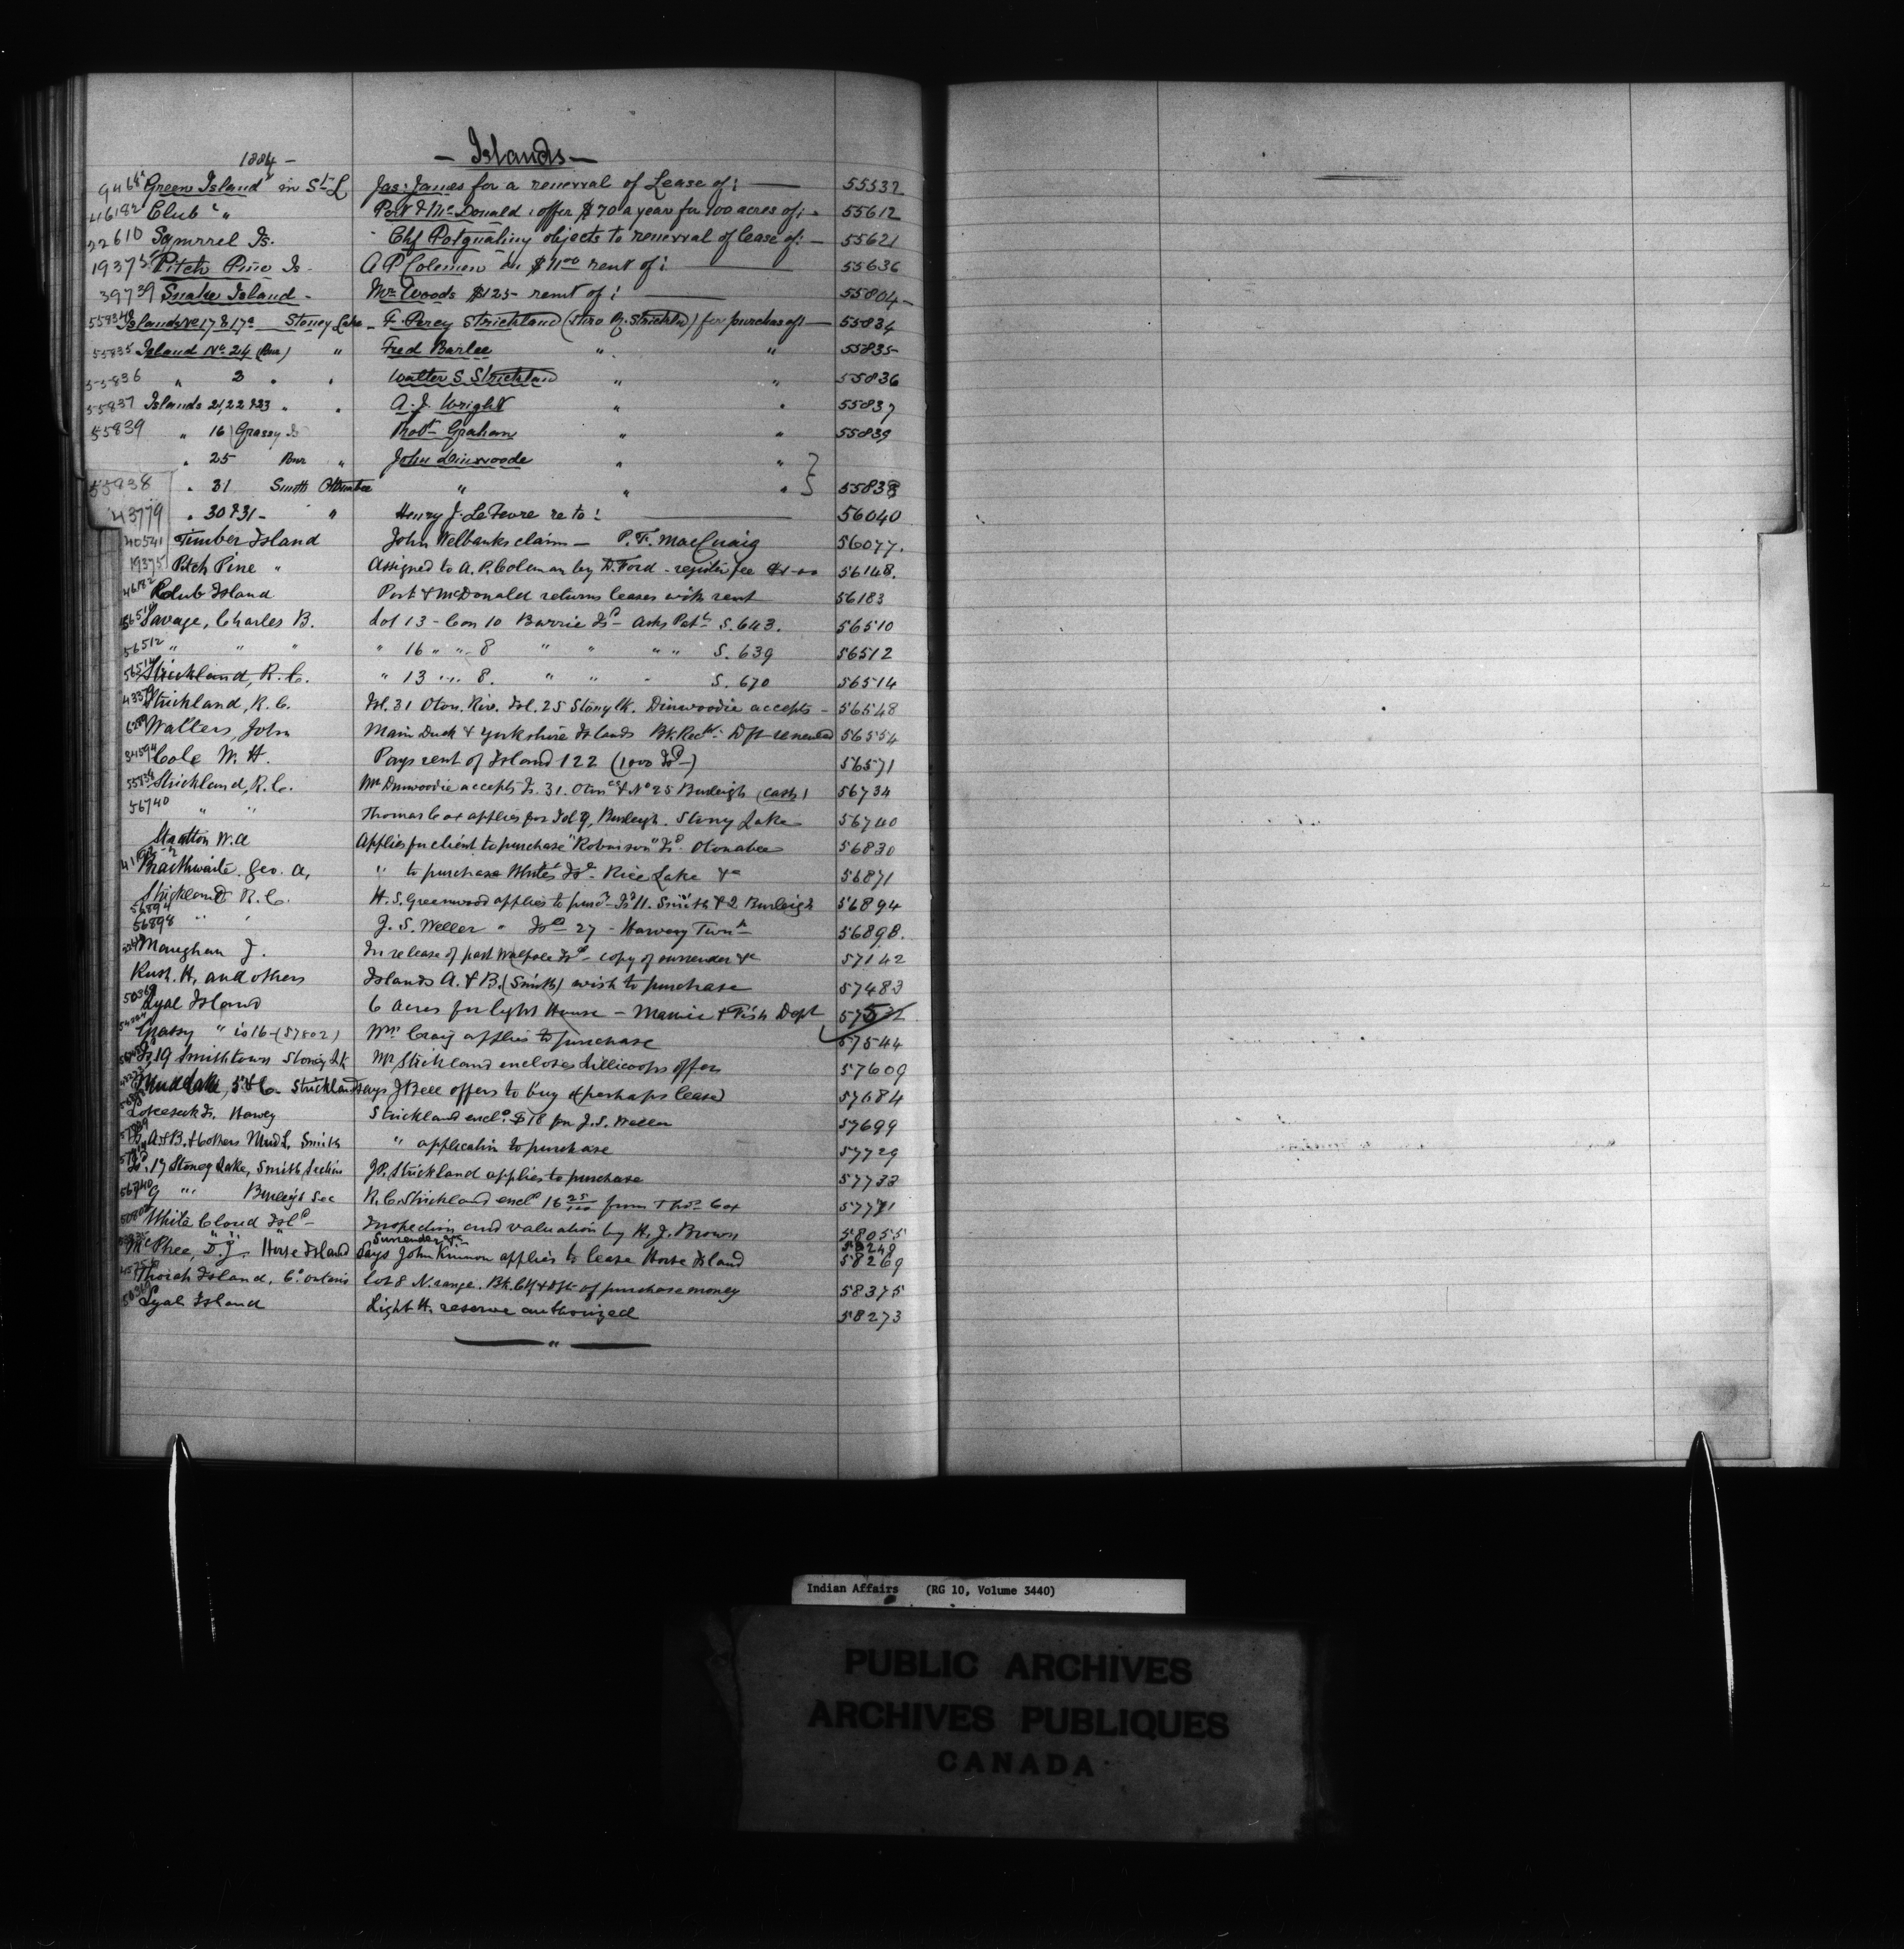 1884 -
- Islands -
Green Island in St. L Jas: James for a renewal of Lease of: 55532
46182 Club " Port & McDonald offer $70 a year for 100 acres of: 55612
22610 Squirrel Is. Chf objects to renewal of lease of: 55621
19375 Pitch Pine Is. A P Coleman $11.00 rent of: 55636
39739 Snake Island - Mr Woods $125- rent of: 55804
Islands No 17 & 17a Stoney Lake - F. Percy Strickland (thro R. Strickld) for purchase of: 55834
55835 Island No. 24 (Bur) " Fred Barlee " " 55835
55836 " 3 " " Walter S Strickland " " 55836
55837 Islands 21, 22 & 23 " " A. J. Wright " " 55837
55839 " 16 Grassy Is Robt Graham " " 55839
" 25 Bur " John Dinwoode " "
55838 " 31 Smith Otonabee " " " 55838
43779 " 30 & 31 - " Henry J. LeFevre re to: 56040
40541 Timber Island John Welbanks claim - P. F. MacCuaig 56077.
19375 Pitch Pine " Assigned to A. P. Coleman by D. Ford - register fee $1.00 56148.
46182 Club Island Port & McDonald returns leases with rent 56183
Savage, Charles B. Lot 13 - Con 10 Barrie Isd - asks Patt S. 643. 56510
56512 " " " " 16 " " 8 " " " " S. 639 56512
56514 Strickland, R. C. " 13 " " 8. " " " S. 670 56514
Strickland, R. C. Isl. 31 Oton. Riv. Isl. 25 Stony Lk. Dinwoodie accepts - 56548
Walters, John Main Duck & Yorkshire Islands Bk. Rect. Dft renewed 56554
Cole W. H. Pays rent of Island 122 (1000 Isd-) 56571
Strickland, R. C. Mr Dinwoodie accepts Is. 31. Oton & No 25 Burleigh (cash) 56734
56740 " " Thomas Cox applies for Isd 9, Burleigh. Stony Lake 56740
Stratton W. A Applies for client to purchase "Robinson" Isd. Otonabee 56830
Braithwaite. Geo. A, " to purchase White's Isd - Rice Lake &c 56871
56894 Strickland R. C. H. S. Greenwood applies to purc. Isd 11. Smith & 2 Burleigh 56894
56898 " " J. S. Weller " Isd 27 - Harvey Twn 56898.
Maughan J. In release of part Walpole Isd - copy of surrender &c 57142
Rush. H, and others Islands A. & B. (Smith) wish to purchase 57483
Lyal Island 6 acres for Light House - Marine & Fish Dept
Grassy " is 16 - (57802) Wm Craig applies to purchase 57544
Is. 19 Smithtown Stoney Lk Mr Strickland encloses Lillicoops offer 57609
Mud Lake, 5 & 6 Strickland says J Bell offers to buy & perhaps lease 57684
Is. Harvey Strickland encl. $10 for J. S. Weller 57699
Is. A & B. & 6 others Mud L. Smith " application to purchase 57729
Is. 17 Stoney Lake, Smith Section J. P. Strickland applies to purchase 57733
56740 9 " " Burleigh Sec R. C. Strickland encl 16 25/100 from Thos Cox 57771
White Cloud Isld - Inspection and valuation by H. J. Brown 58055
" " Surrender &c- 58248
McPhee, D. J - Horse Island Says John Kinnon applies to lease Horse Island 58269
Thorah Island, Co. Ontario Lot 8 N. range. Bk. Ctf & Dft of purchase money 58375
Lyal Island Light H. reserve authorized 58273
Indian Affairs (RG 10, Volume 3440)
PUBLIC ARCHIVES
ARCHIVES PUBLIQUES
CANADA